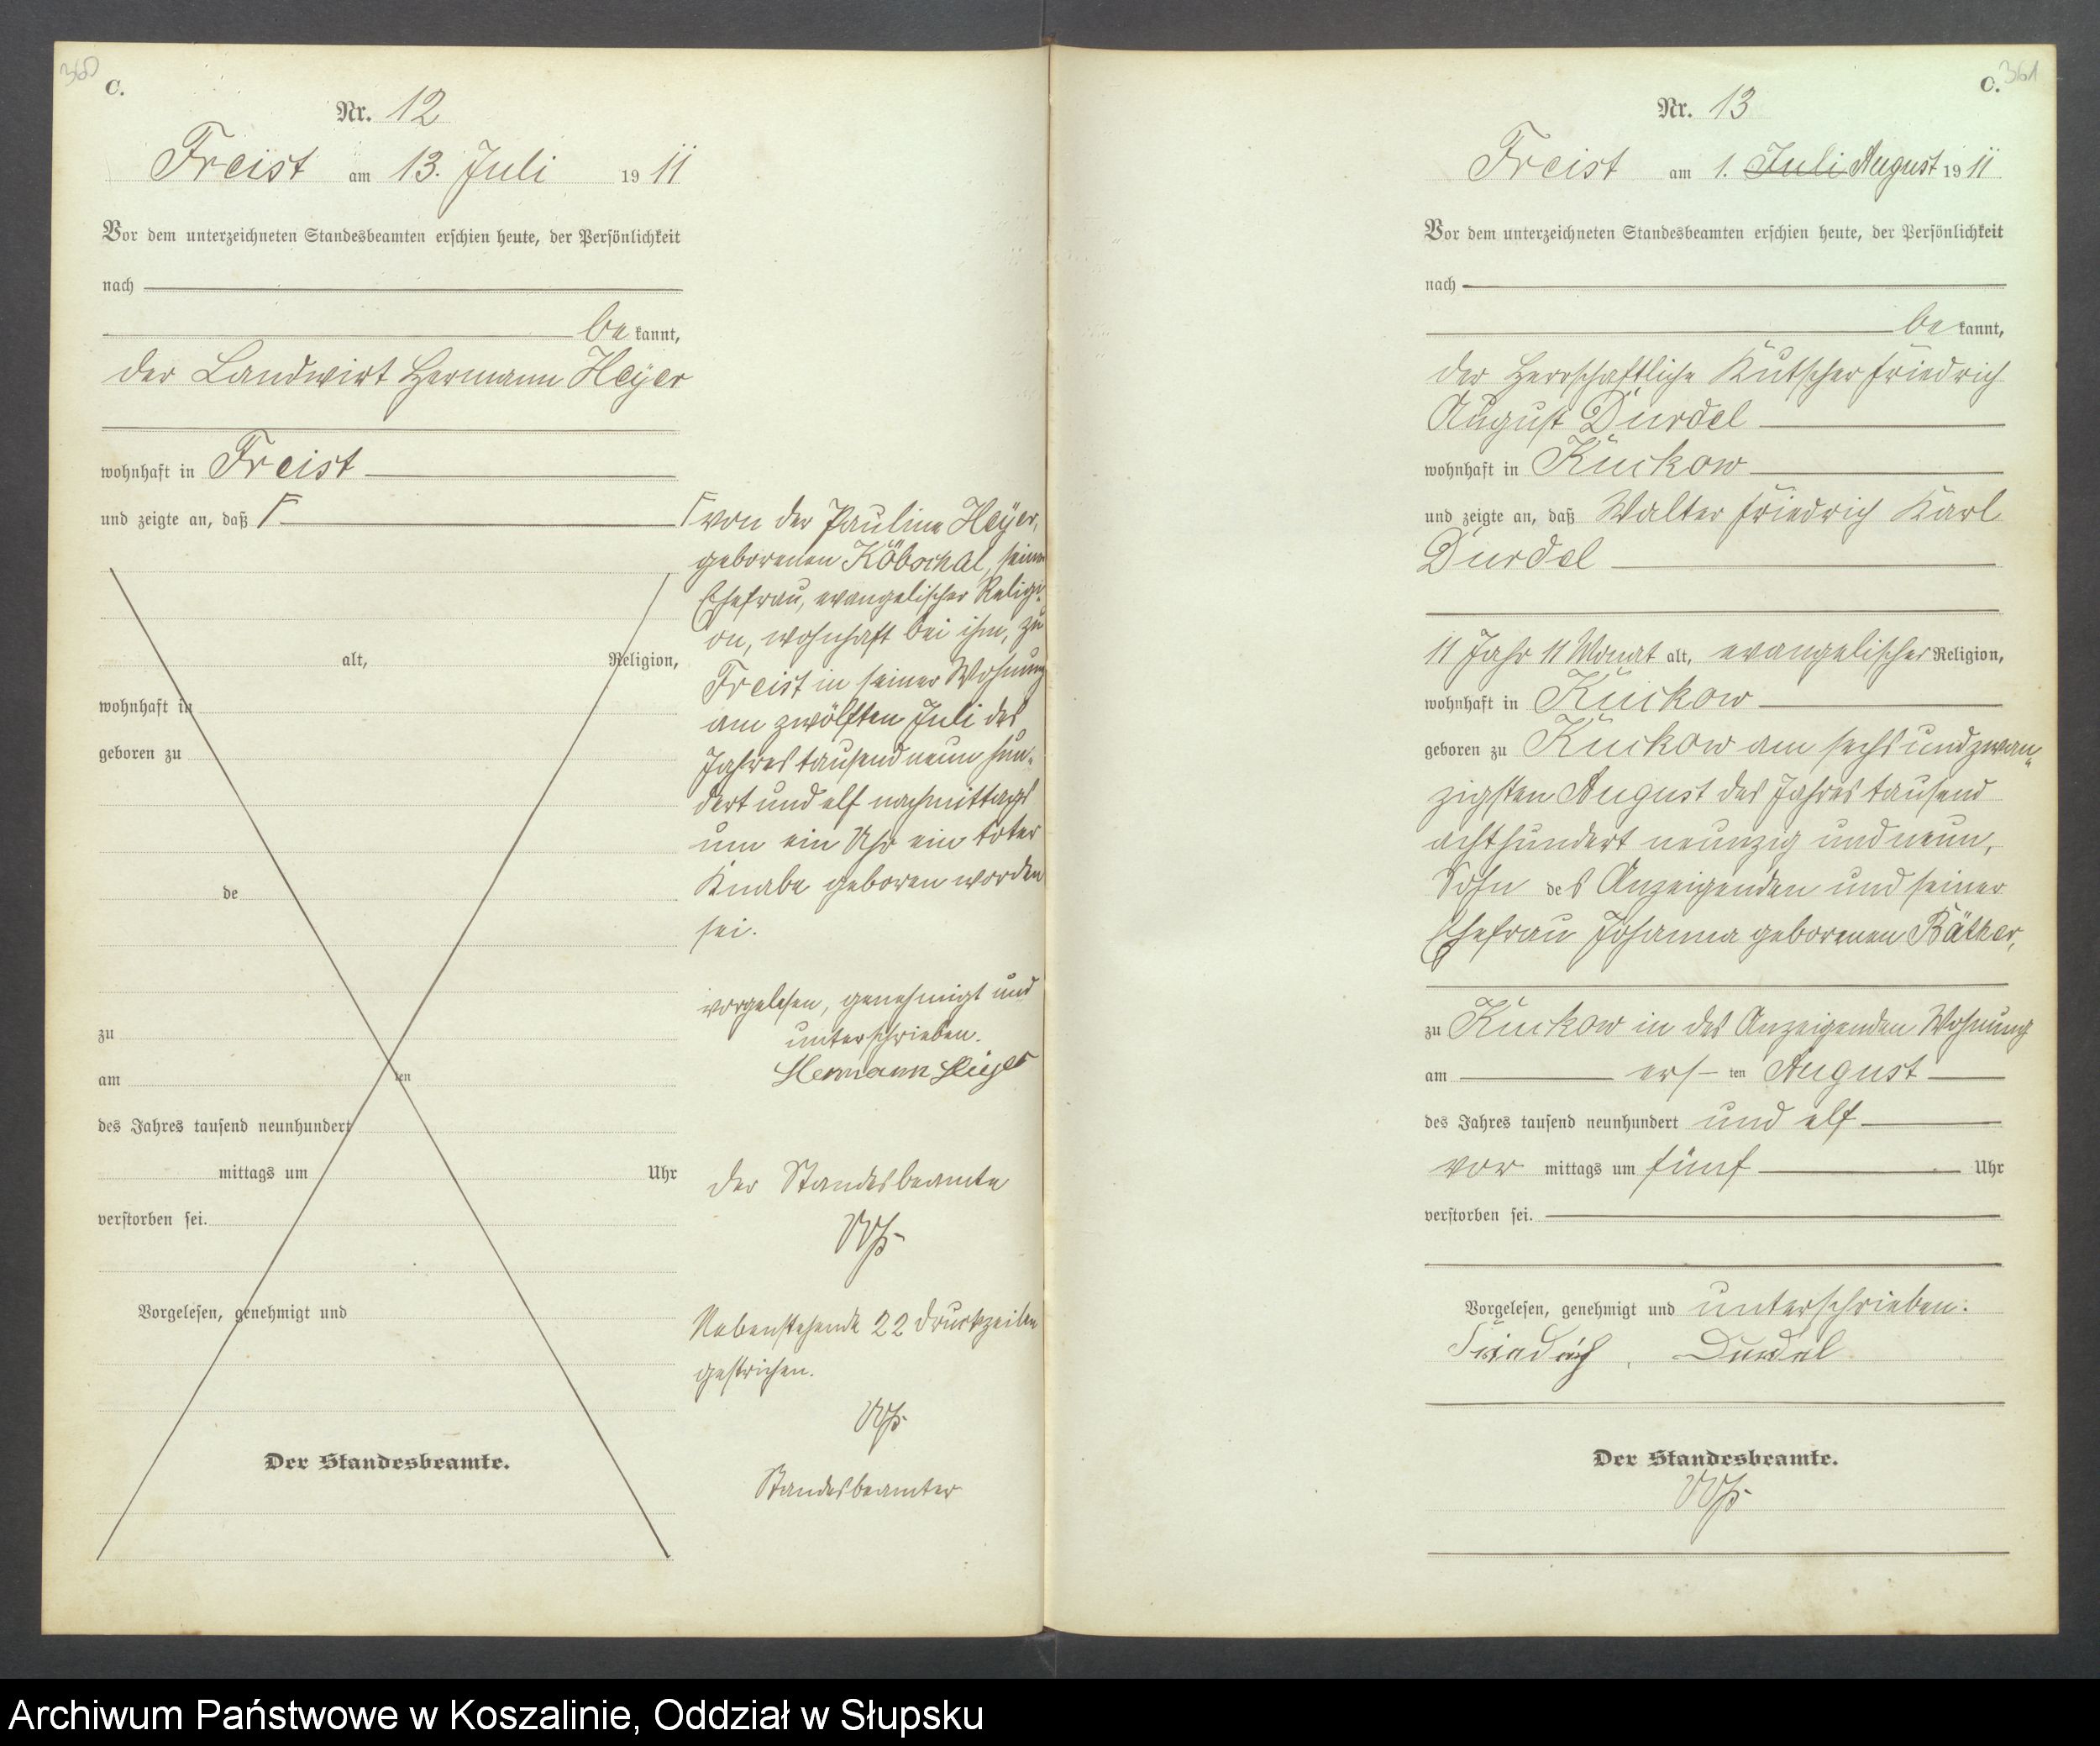 360
C.
Nr. 12
Freist am 13. Juli 1911
Vor dem unterzeichneten Standesbeamten erschien heute, der Persönlichkeit
nach
be kannt,
der Landwirt Hermann Heyer
wohnhaft in Freist
und zeigte an, daß
alt, Religion,
wohnhaft in
geboren zu
de
zu
am ten
des Jahres tausend neunhundert
mittags um Uhr
verstorben sei.
Vorgelesen, genehmigt und
Der Standesbeamte.
von der Pauline Heyer,
geborenen Köbschal, seiner
Ehefrau, evangelischer Religi-
on, wohnhaft bei ihm, zu
Freist in seiner Wohnung
am zwölften Juli des
Jahres tausend neun hun-
dert und elf nachmittags
um ein Uhr ein toter
Knabe geboren worden
sei.
vorgelesen, genehmigt und
unterschrieben.
Hermann Heyer
Der Standesbeamte
Nebenstehende 22 Druckzeilen
gestrichen.
Standesbeamter
361
C.
Nr. 13
Freist am 1. Juli August 1911
Vor dem unterzeichneten Standesbeamten erschien heute, der Persönlichkeit
nach
be kannt,
der Herrschaftliche Kutscher Friedrich
August Durdel
wohnhaft in Kuckow
und zeigte an, daß Walter Friedrich Karl
Durdel
11 Jahr 11 Monat alt, evangelischer Religion,
wohnhaft in Kuckow
geboren zu Kuckow am sechs und zwan-
zigsten August des Jahres tausend
achthundert neunzig und neun,
Sohn des Anzeigenden und seiner
Ehefrau Johanna geborenen Räther,
zu Kuckow in des Anzeigenden Wohnung
am ers-ten August
des Jahres tausend neunhundert und elf
vor mittags um fünf Uhr
verstorben sei.
Vorgelesen, genehmigt und unterschrieben.
Friedrich Durdel
Der Standesbeamte.
Archiwum Państwowe w Koszalinie, Oddział w Słupsku